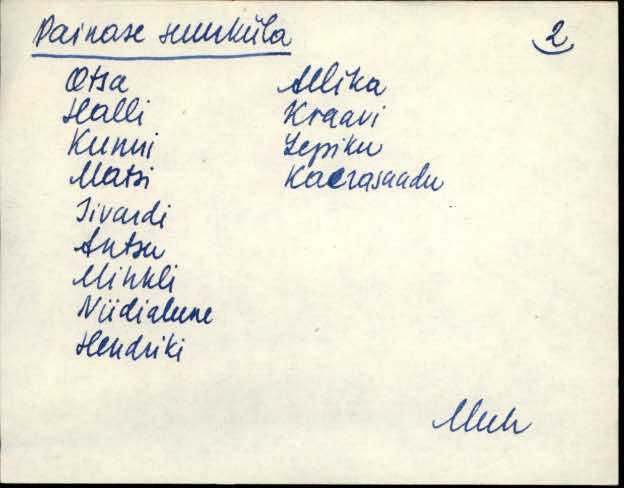 Painase suurküla
2
Otsa
Halli
Kunni
Matsi
Sivardi
Antsu
Mihkli
Niidialuse
Hendriki
Allika
Kraavi
Lepiku
Kaerasaadu
Muh